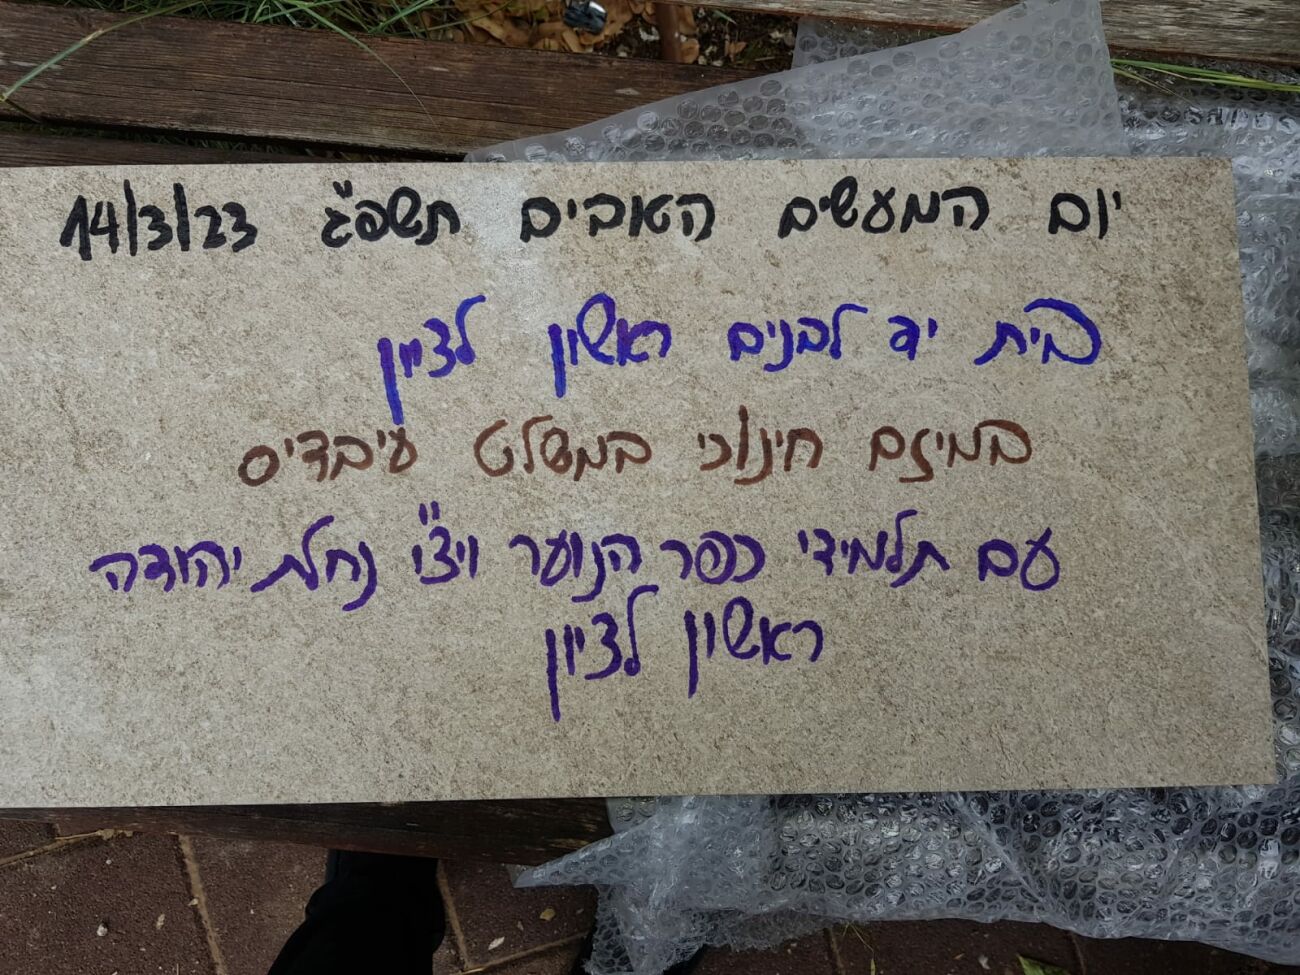 יום המעשים הטובים תשפ"ג 14/3/23
בית יד לבנים ראשון לציון
במיזם חינוכי במשלט עיבדיס
עם תלמידי כפר הנוער ויצ"ו נחלת יהודה
ראשון לציון